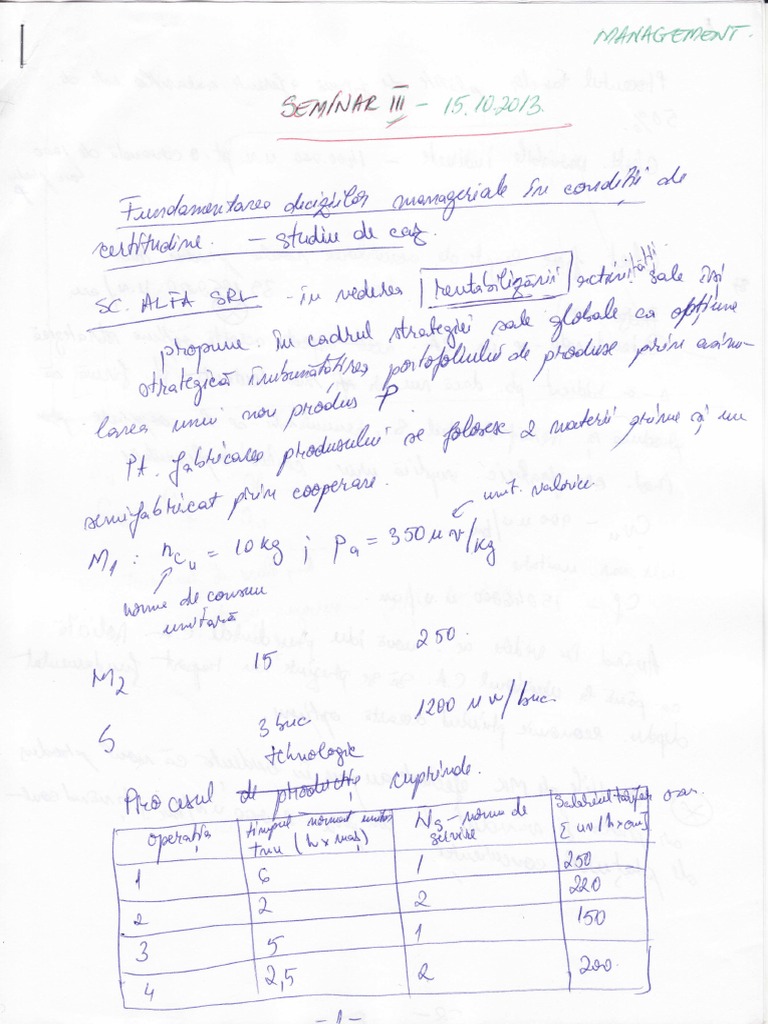 MANAGEMENT.
SEMINAR III - 15.10.2013.
Fundamentarea deciziilor manageriale în condiții de
certitudine. - studiu de caz.
SC. ALFA SRL - în vederea rentabilizării activității sale își
propune în cadrul strategiei sale globale ca opțiune
strategică îmbunătățirea portofoliului de produse prin asimi-
larea unui nou produs P
Pt. fabricarea produsului se folosesc 2 materii prime și un
semifabricat prin cooperare.
unit. valorice
M1 : ncu = 10 kg ; Pa = 350 u v/kg
norma de consum
unitară
M2 15 250.
S 3 buc 1200 u v/buc.
tehnologic
Procesul de producție cuprinde.
operația timpul normat unitar Ns - norma de Salariul tarifar orar.
(h x maș) servire [uv/h x om]
1 6 1 250
2 2 2 220
3 5 1 150
4 2,5 2 200.
-1-